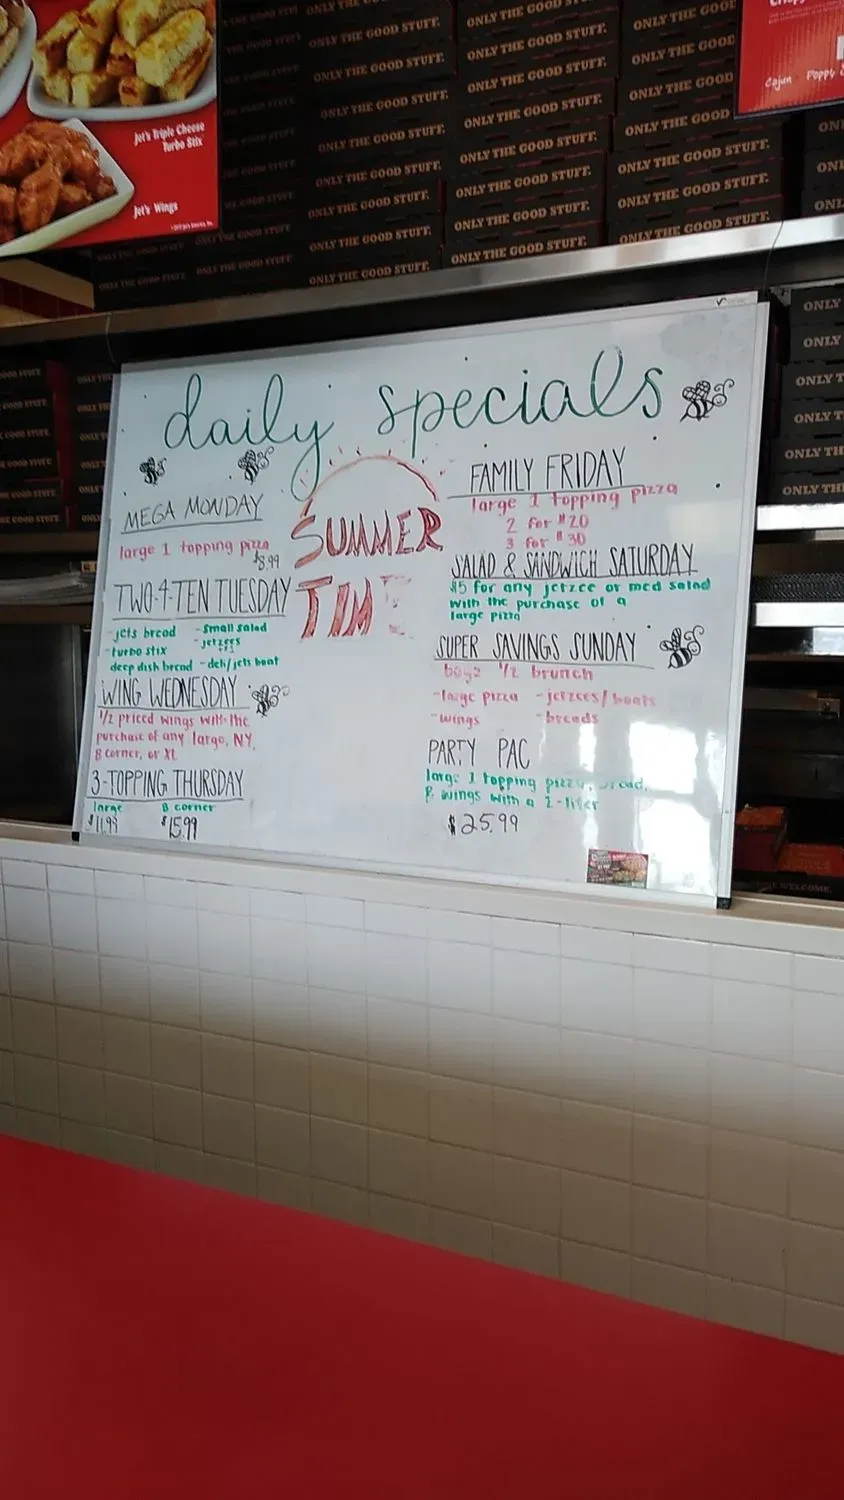 Jet's Triple Cheese
Turbo Stix
Jet's Wings
Cajun
ONLY THE GOOD STUFF.
ONLY THE GOOD STUFF.
ONLY THE GOOD STUFF.
ONLY THE GOOD STUFF.
ONLY THE GOOD STUFF.
ONLY THE GOOD STUFF.
ONLY THE GOOD STUFF.
ONLY THE GOOD STUFF.
ONLY THE GOOD STUFF.
ONLY THE GOOD STUFF.
ONLY THE GOOD STUFF.
ONLY THE GOOD STUFF.
daily specials
MEGA MONDAY
large 1 topping pizza
$8.99
TWO-4-TEN TUESDAY
-jets bread -small salad
-turbo stix -jetzees
deep dish bread -deli/jets boat
WING WEDNESDAY
1/2 priced wings with the
purchase of any large, NY,
8 corner, or XL
3-TOPPING THURSDAY
large 8 corner
$11.99 $15.99
SUMMER
TIME
FAMILY FRIDAY
large 1 topping pizza
2 for $20
3 for $30
SALAD & SANDWICH SATURDAY
$5 for any jetzee or med salad
with the purchase of a
large pizza
SUPER SAVINGS SUNDAY
bogo 1/2 brunch
-large pizza -jetzees/boats
-wings -breads
PARTY PAC
large 1 topping pizza, bread,
8 wings with a 2-liter
$25.99